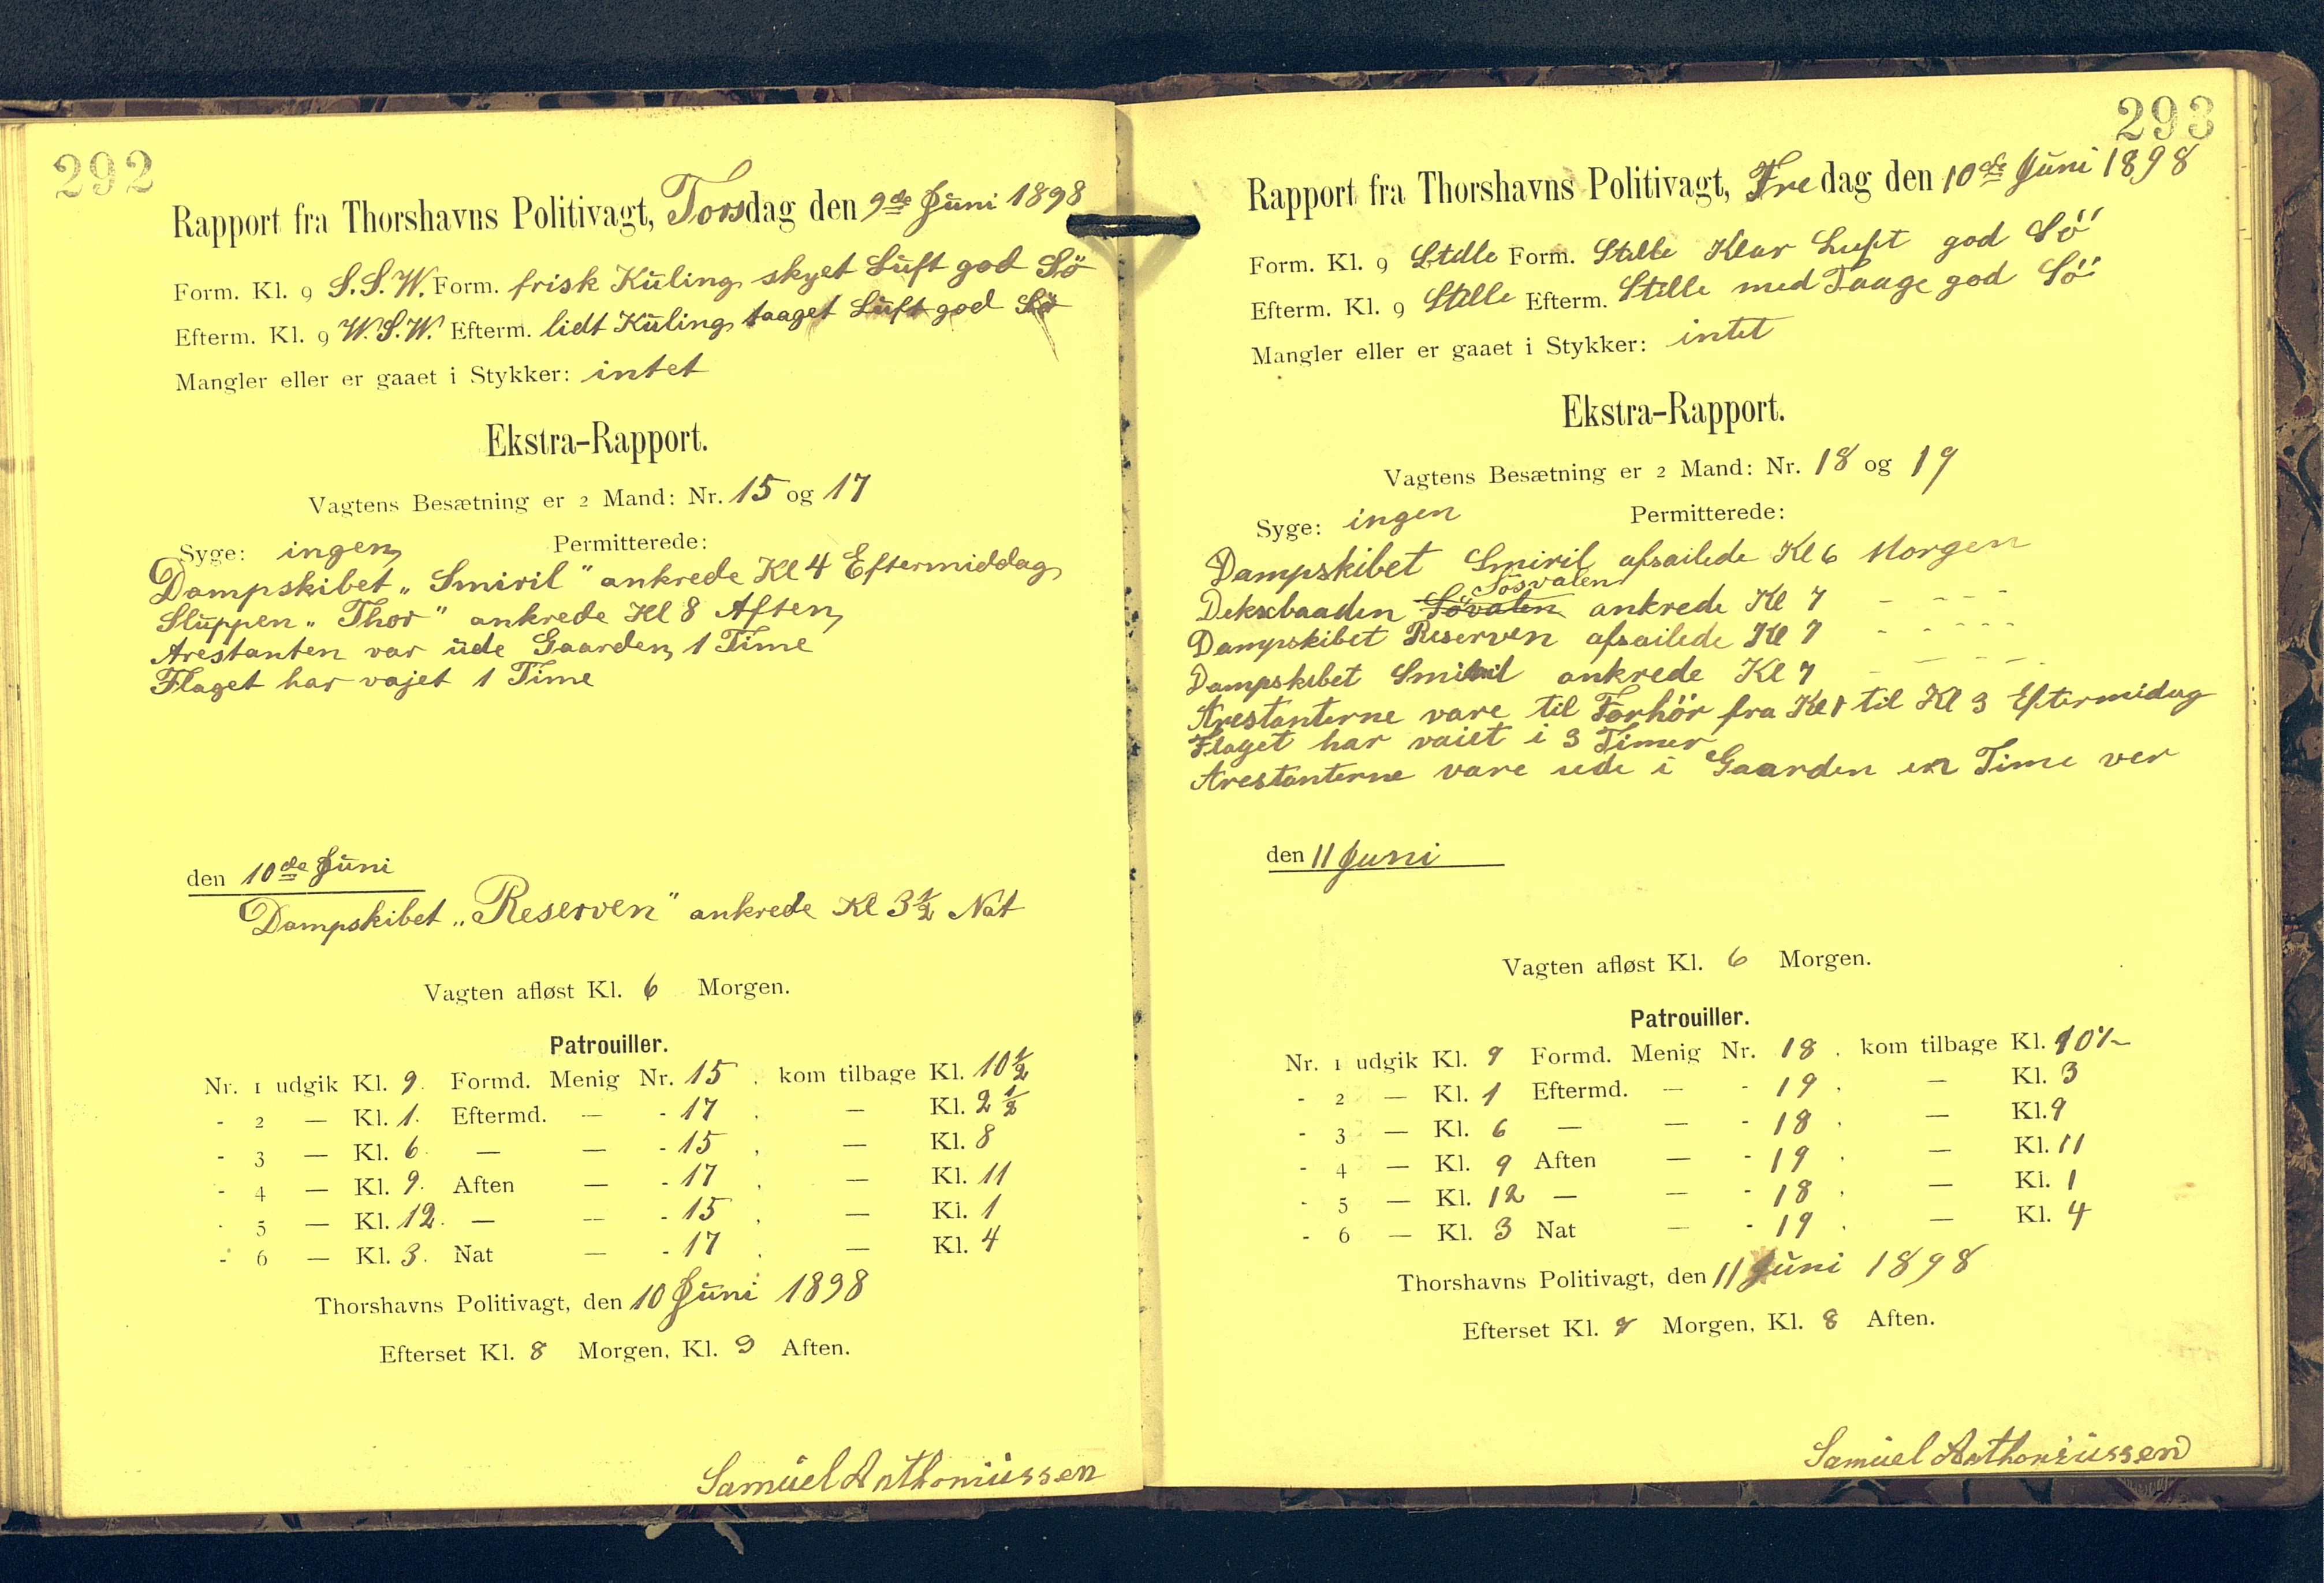 292
Rapport fra Thorshavns Politivagt, Torsdag den 9de Juni 1898
Form. Kl. 9 S.S.W. Form. frisk Kuling skyet Luft god Sö
Efterm. Kl. 9 W.S.W. Efterm. lidt Kuling taaget Luft god Sö
Mangler eller er gaaet i Stykker: intet
Ekstra-Rapport.
Vagtens Besætning er 2 Mand: Nr. 15 og 17
Syge: ingen Permitterede:
Dampskibet „Smiril" ankrede Kl 4 Eftermiddag
Sluppen „Thor" ankrede Kl 8 Aften
Arestanten var ude Gaarden 1 Time
Flaget har vajet 1 Time
den 10de Juni
Dampskibet „Reserven" ankrede Kl 3½ Nat
Vagten afløst Kl. 6 Morgen.
Patrouiller.
Nr. 1 udgik Kl. 9. Formd. Menig Nr. 15 . kom tilbage Kl. 10½
- 2 — Kl. 1. Eftermd. — - 17 . — Kl. 2½
- 3 — Kl. 6. — — - 15 . — Kl. 8
- 4 — Kl. 9. Aften — - 17 . — Kl. 11
- 5 — Kl. 12. — — - 15 . — Kl. 1
- 6 — Kl. 3. Nat — - 17 . — Kl. 4
Thorshavns Politivagt, den 10 Juni 1898
Efterset Kl. 8 Morgen, Kl. 9 Aften.
Samuel Anthoniussen
293
Rapport fra Thorshavns Politivagt, Fredag den 10de Juni 1898
Form. Kl. 9 Stille Form. Stille Klar Luft god Sö
Efterm. Kl. 9 Stille Efterm. Stille med Taage god Sö
Mangler eller er gaaet i Stykker: intet
Ekstra-Rapport.
Vagtens Besætning er 2 Mand: Nr. 18 og 19
Syge: ingen Permitterede:
Dampskibet Smiril afsailede Kl 6 Morgen
Sösvalen
Deksbaaden Sövalen ankrede Kl 7 - - - -
Dampskibet Reserven afsailede Kl 7 - - - - -
Dampskibet Smiril ankrede Kl 7 - - - - -
Arestanterne vare til Forhör fra Kl 1 til Kl 3 Eftermidag
Flaget har vaiet i 3 Timer
Arestanterne vare ude i Gaarden en Time ver
den 11 Juni
Vagten afløst Kl. 6 Morgen.
Patrouiller.
Nr. 1 udgik Kl. 9 Formd. Menig Nr. 18 . kom tilbage Kl.
- 2 — Kl. 1 Eftermd. — - 19 . — Kl. 3
- 3 — Kl. 6 — — - 18 . — Kl. 9
- 4 — Kl. 9 Aften — - 19 . — Kl. 11
- 5 — Kl. 12 — — - 18 . — Kl. 1
- 6 — Kl. 3 Nat — - 19 . — Kl. 4
Thorshavns Politivagt, den 11 Juni 1898
Efterset Kl. Morgen, Kl. 8 Aften.
Samuel Anthoniussen